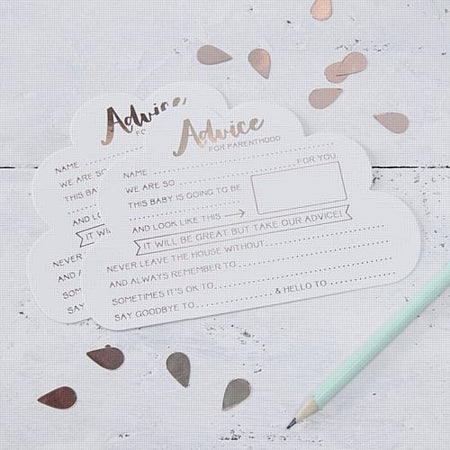 Advice
FO
NAME
WE ARE SO
THIS BAB
AND LO
IT WI
NEVER
AND A
SOMET
SAY G
Advice
FOR PARENTHOOD
NAME
WE ARE SO FOR YOU
THIS BABY IS GOING TO BE
AND LOOK LIKE THIS
IT WILL BE GREAT BUT TAKE OUR ADVICE!
NEVER LEAVE THE HOUSE WITHOUT
AND ALWAYS REMEMBER TO
SOMETIMES IT'S OK TO
SAY GOODBYE TO & HELLO TO